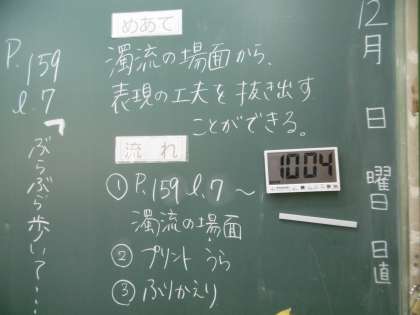 12月 日 曜日 日直
めあて
濁流の場面から、
表現の工夫を抜き出す
ことができる。
流れ
① P.159 l.7 ～
濁流の場面
② プリント うら
③ ふりかえり
10:04
P.159
l.7
ぶらぶら歩いて?……